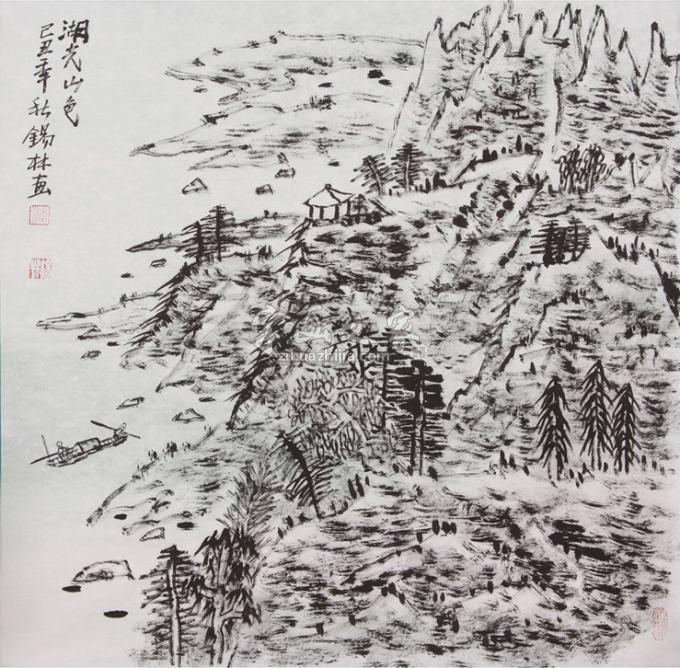 湖光山色
己丑年秋锡林画
zihuazhijia.com